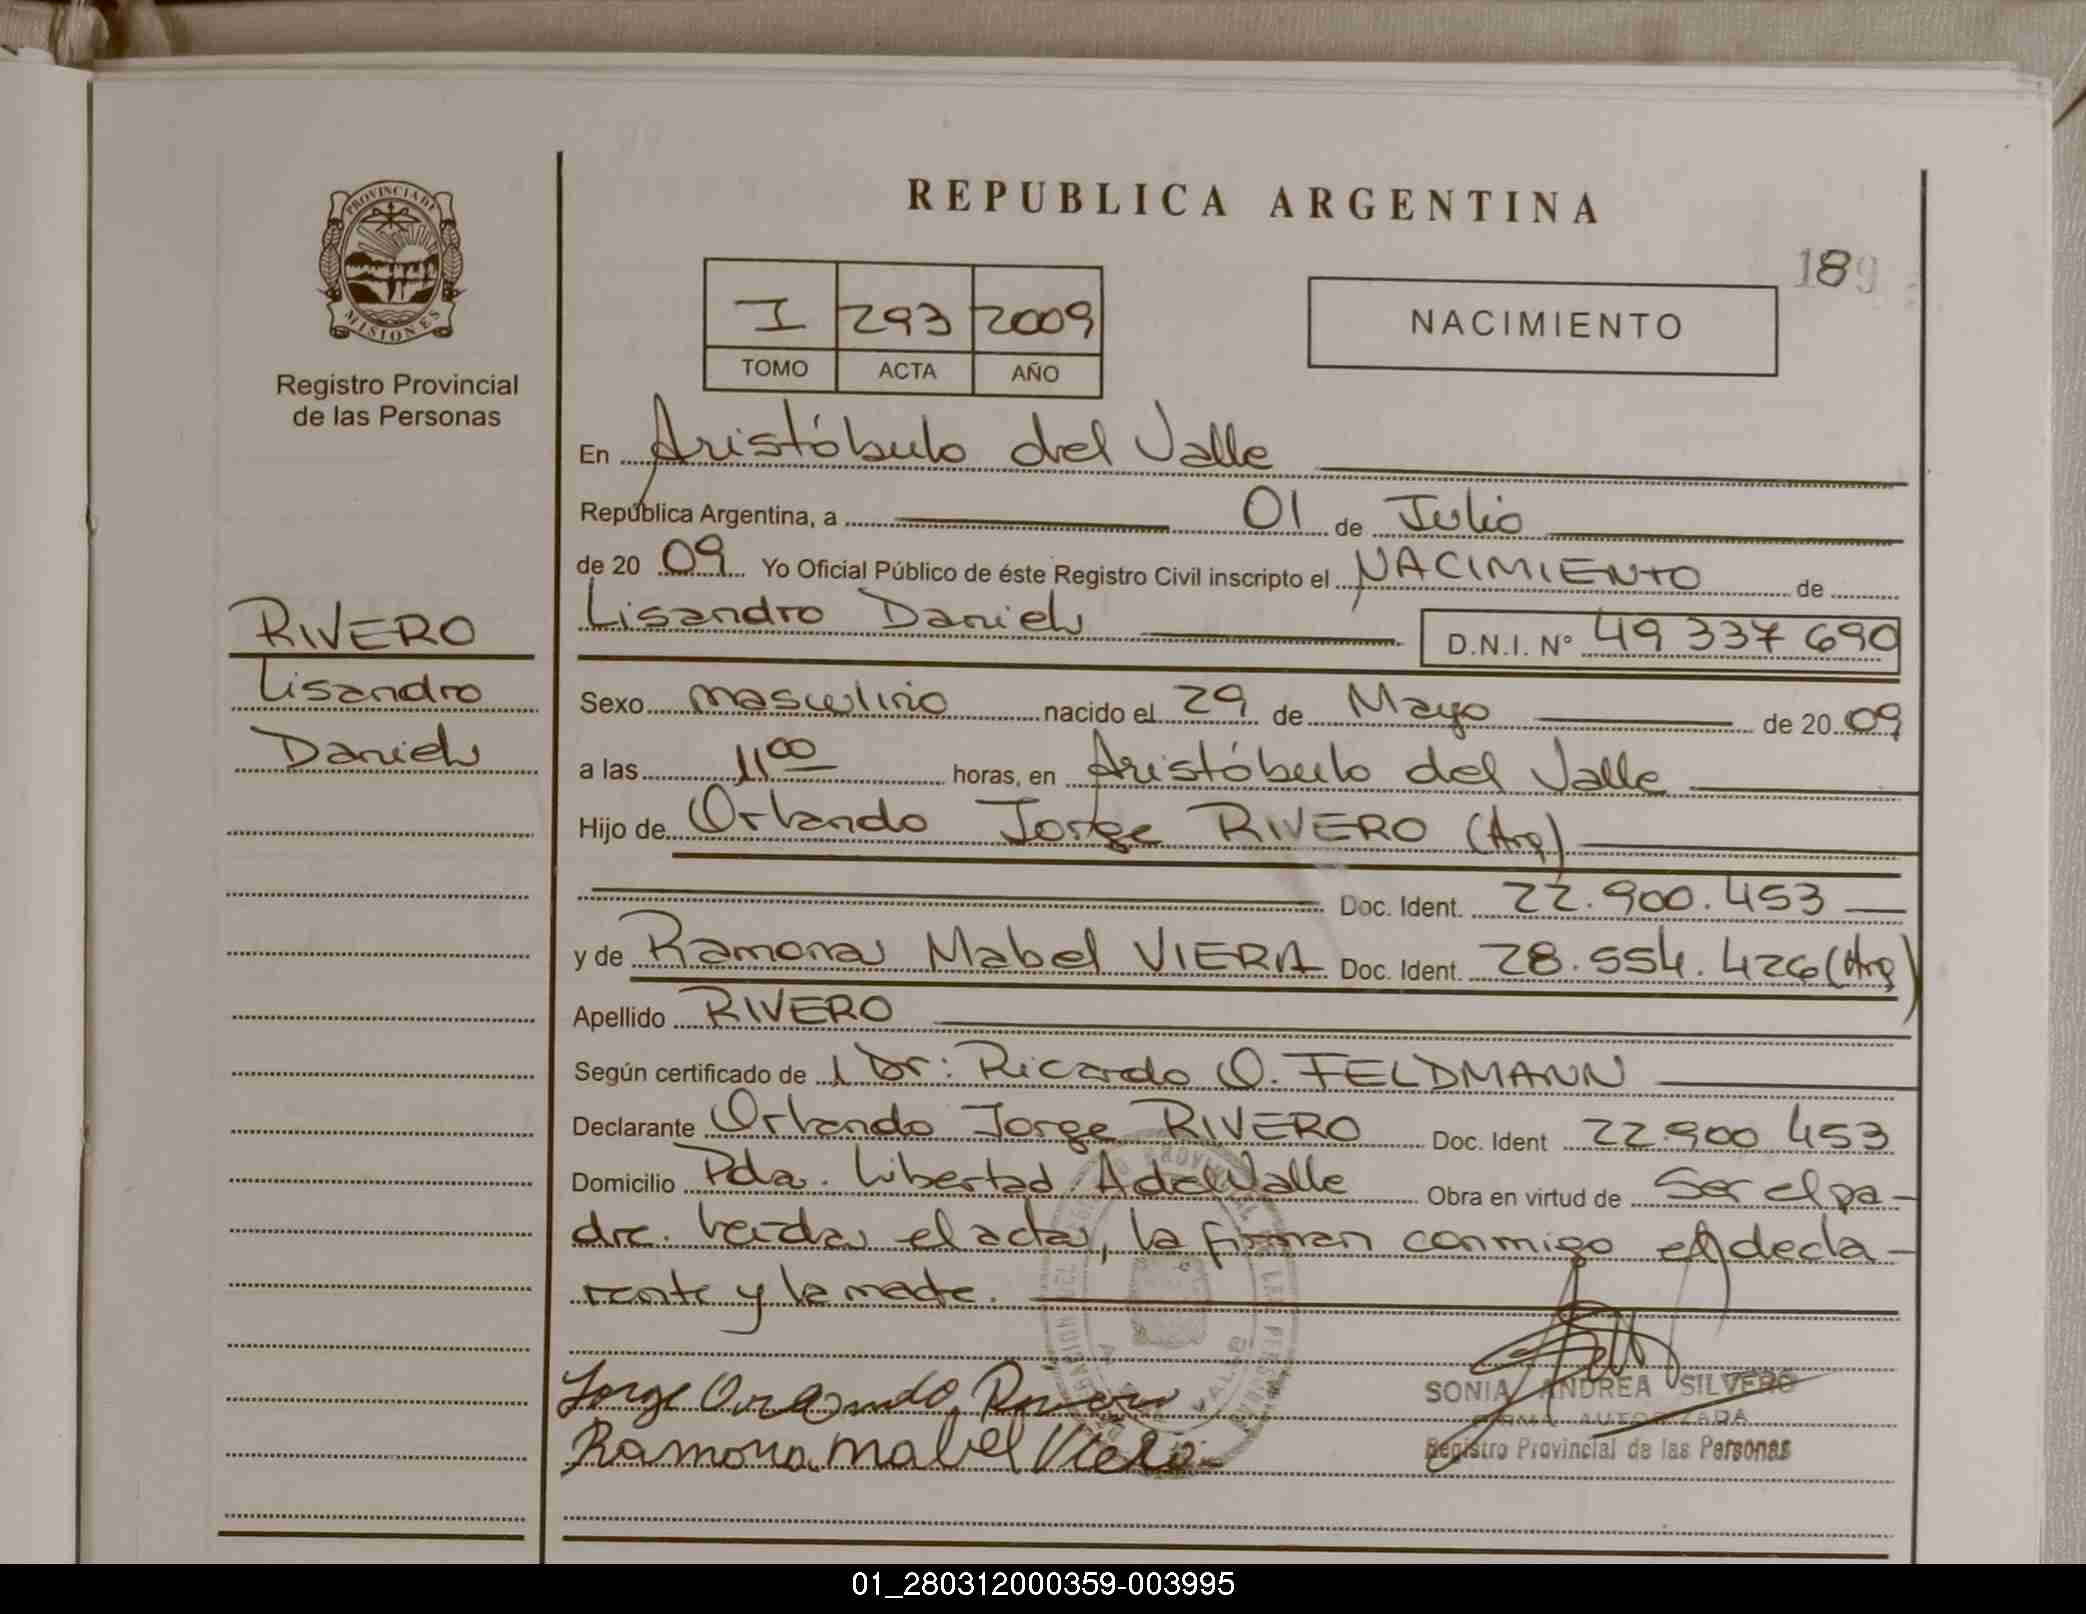 PROVINCIA DE
MISIONES
Registro Provincial
de las Personas
RIVERO
Lisandro
Daniel
REPUBLICA ARGENTINA
189
I 293 2009
TOMO ACTA AÑO
NACIMIENTO
En Aristóbulo del Valle
República Argentina, a 01 de Julio
de 20 09 Yo Oficial Público de éste Registro Civil inscripto el NACIMIENTO de
Lisandro Daniel D.N.I. Nº 49 337 690
Sexo masculino nacido el 29 de Mayo de 20 09
a las 11 00 horas, en Aristóbulo del Valle
Hijo de Orlando Jorge RIVERO (Arg)
Doc. Ident. 22.900.453
y de Ramona Mabel VIERA Doc. Ident. 28.554.426 (Arg)
Apellido RIVERO
Según certificado de Dr: Ricardo O. FELDMANN
Declarante Orlando Jorge RIVERO Doc. Ident 22.900 453
Domicilio Pda. Libertad. A del Valle Obra en virtud de Ser el pa-
dre. Leída el acta, la firman conmigo el decla-
rante y la madre.
Jorge Orlando Rivero
Ramona Mabel Viera
SONIA ANDREA SILVERO
FIRMA AUTORIZADA
Registro Provincial de las Personas
01_280312000359-003995